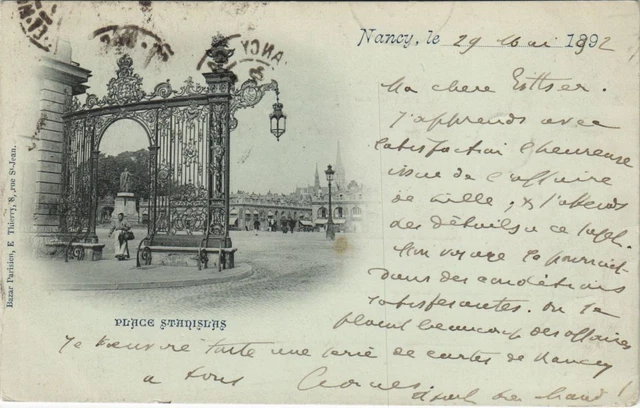 NANCY
Nancy, le 29 Mai 1892
Ma chère Esther.
J'apprends avec
satisfaction l'heureuse
issue de l'affaire
de mille, & j'attends
des détails à ce sujet.
Mon voyage se poursuit
dans des conditions
satisfesantes. On se
plaint beaucoup des affaires
Je t'envoie toute une série de cartes de Nancy
à tous
PLACE STANISLAS
Bazar Parisien, E. Thierry, 8, rue St-Jean.